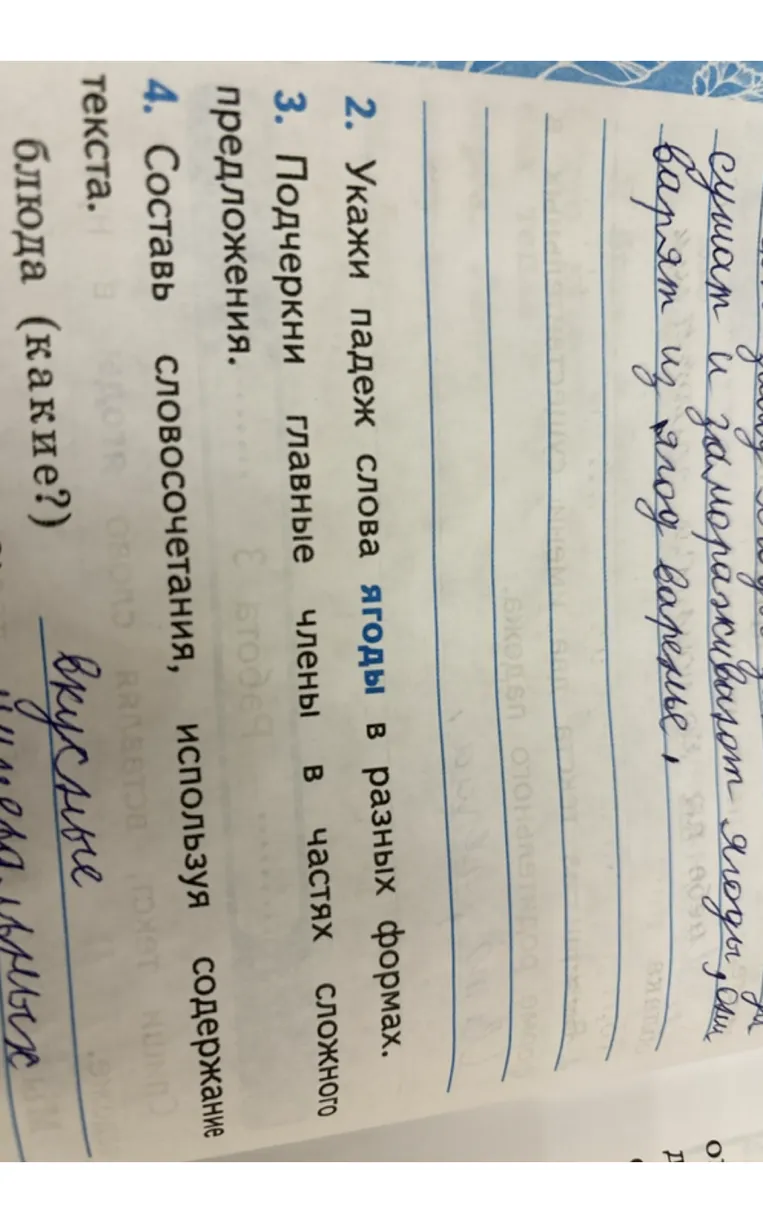 сушат и замораживают ягоды, они
варят из ягод варенье,
2. Укажи падеж слова ягоды в разных формах.
3. Подчеркни главные члены в частях сложного
предложения.
4. Составь словосочетания, используя содержание
текста.
блюда (какие?) вкусные